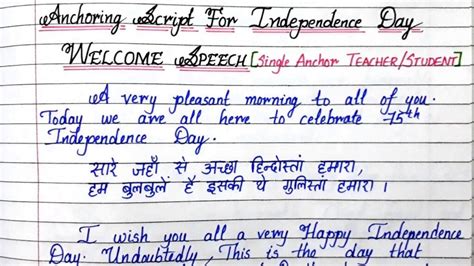 Anchoring Script For Independence Day
WELCOME SPEECH [Single Anchor TEACHER/STUDENT]
A very pleasant morning to all of you.
Today we are all here to celebrate 75th
Independence Day.
सारे जहाँ से अच्छा हिन्दोस्तां हमारा,
हम बुलबुलें हैं इसकी ये गुलिस्तां हमारा।
I wish you all a very Happy Independence
Day. Undoubtedly, This is the day that